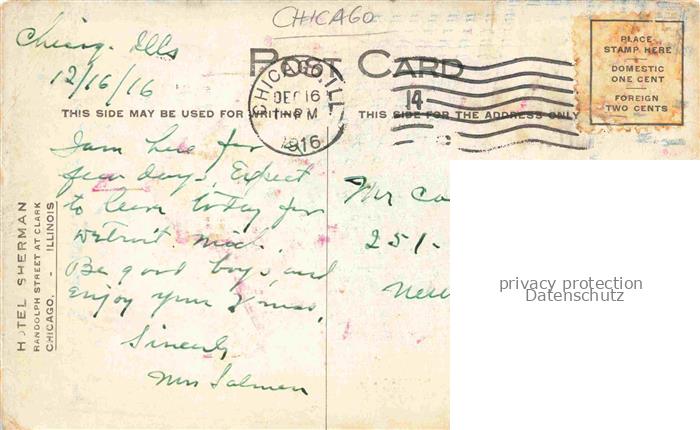 CHICAGO
Chicag. Ills
12/16/16
POST CARD
CHICAGO, ILL.
DEC 16
PM
1916
14
PLACE
STAMP HERE
DOMESTIC
ONE CENT
FOREIGN
TWO CENTS
THIS SIDE MAY BE USED FOR WRITING
THIS SIDE FOR THE ADDRESS ONLY
I am here for
few days, Expect
to leave today for
Detroit Mich.
Be good boys, and
enjoy your Xmas,
Sincerely
HOTEL SHERMAN
RANDOLPH STREET AT CLARK
CHICAGO, - ILLINOIS
Mr Ca
251-
New
privacy protection
Datenschutz